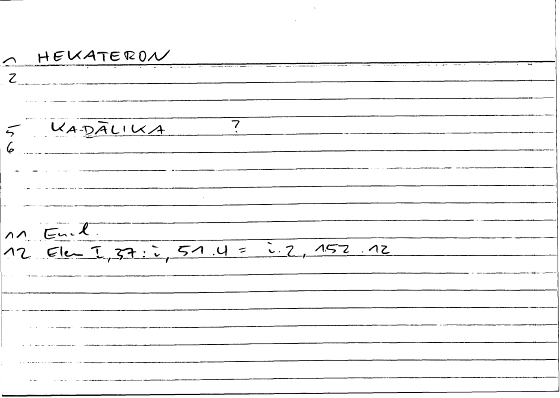 1 HEKATERON
2
5 KADĀLIKA ?
6
11 Eucl.
12 Elem I, 37 : i, 51.4 = i.2, 152.12